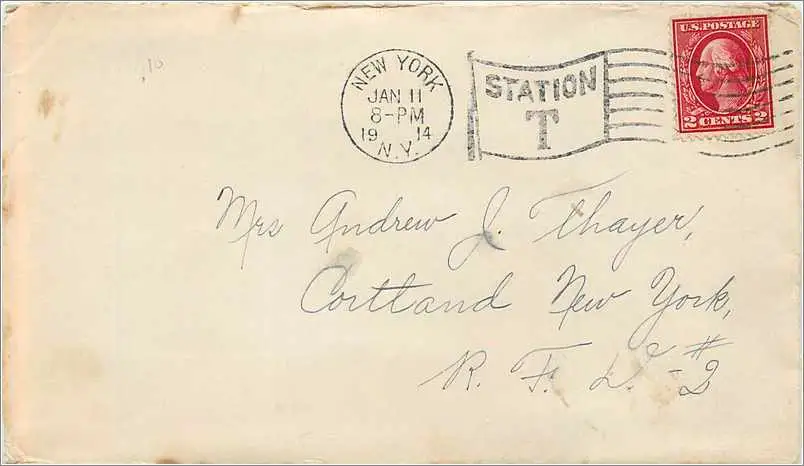 .10
NEW YORK
JAN 11
8-PM
19 14
N.Y.
STATION
T
U.S. POSTAGE
2 CENTS 2
Mrs Andrew J. Thayer,
Cortland New York,
R. F. D. #2